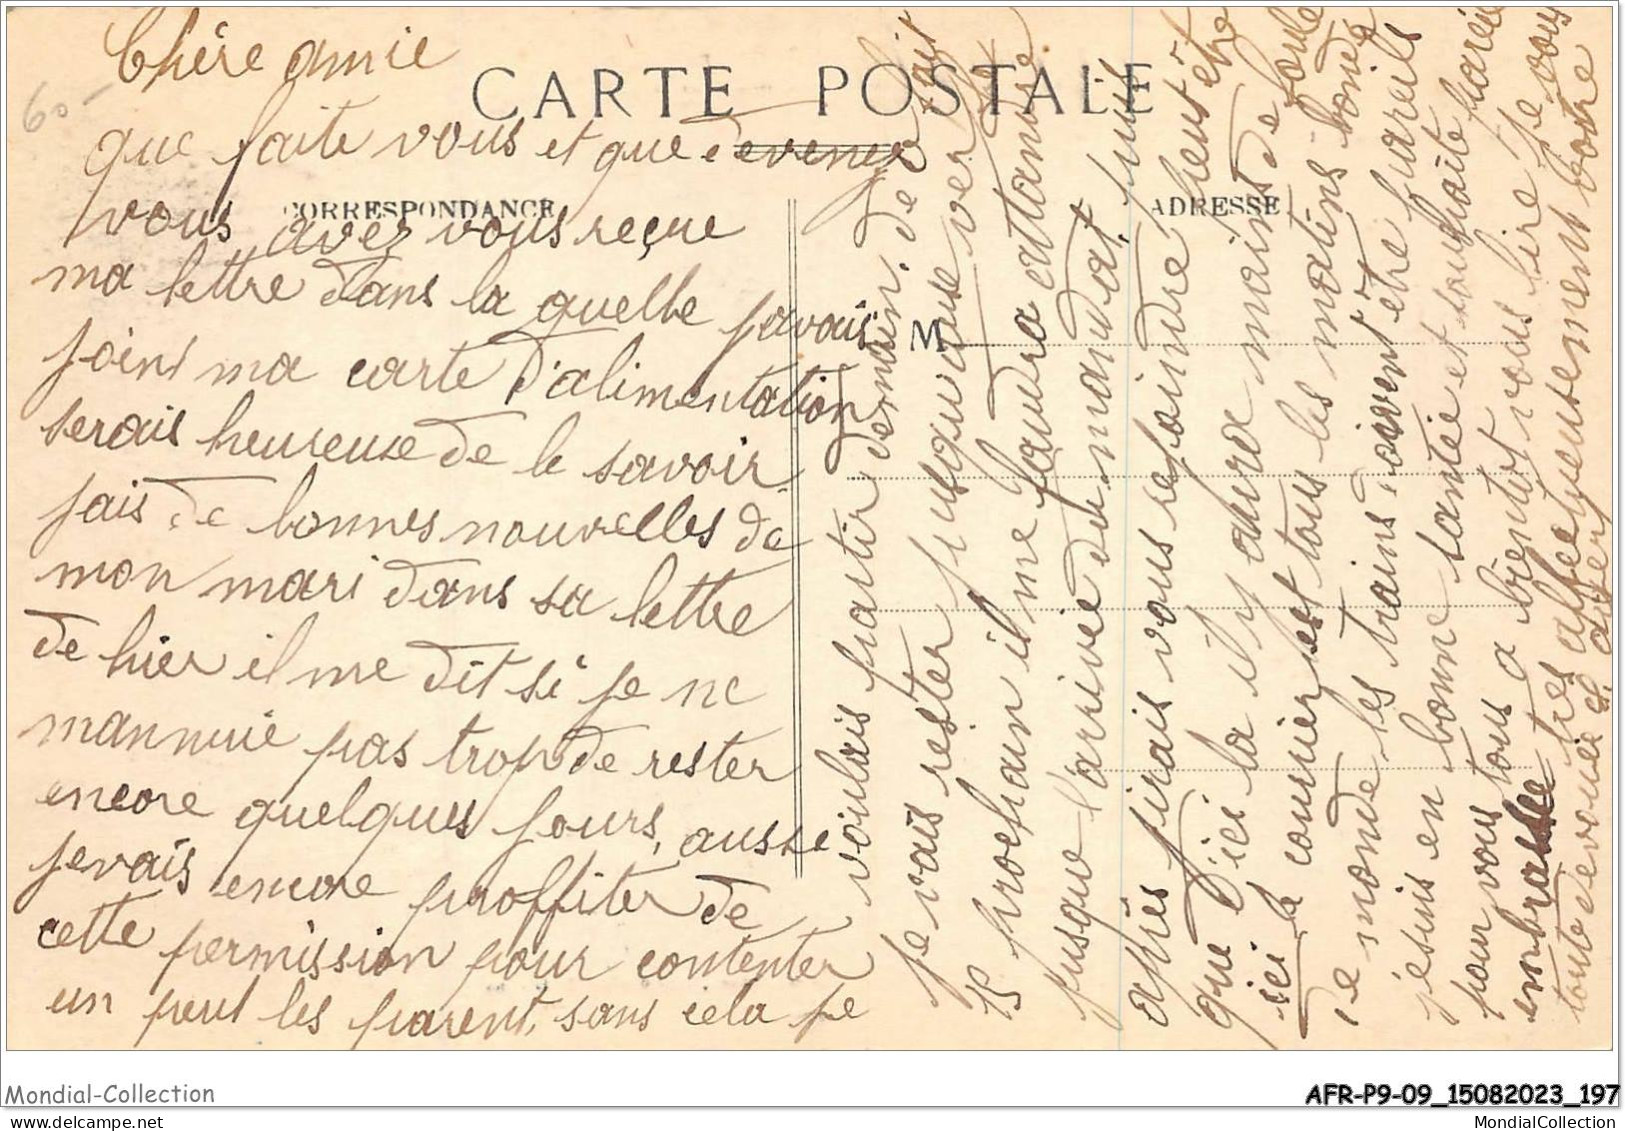 Chère amie
CARTE POSTALE
que faite vous et que devenez
CORRESPONDANCE
ADRESSE
vous avez vous reçue
ma lettre dans la quelle javais
joins ma carte d'alimentation
serais heureuse de le savoir
jais de bonnes nouvelles de
mon mari dans sa lettre
de hier il me dit si je ne
mannuie pas trop de rester
encore quelques jours, ausse
jevais encore proffiter de
cette permission pour contenter
un peut les parent, sans cela je
M
voulais partir demain. de fait
je vais rester jusquvause ver le
15 prochain il me faudra attandre
jusque l'arrivée du mandat, puis
après jirais vous rejoindre peut être
que d'ici la il y aura moins de foule
ici le courrier est tous les matins bondé
de monde les trains doivent être pareils
jesuis en bonne santée et souhaite pareil
pour vous tous a bientot vous lire je vous
embrasse très affectueusement votre
toute devouée
60-
Mondial-Collection
AFR-P9-09_15082023_197
www.delcampe.net
MondialCollection